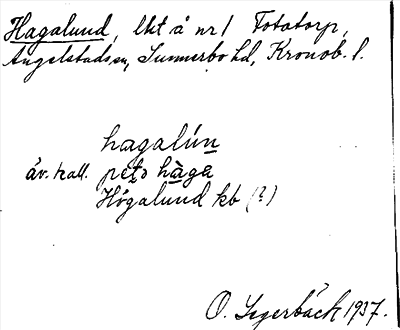 Hagalund, lht å nr 1 Totatorp,
Angelstads sn, Sunnerbo hd, Kronob. l.
hagalún
äv. kall. peto hàga
Högalund kb (?)
O. Segerbäck 1937.